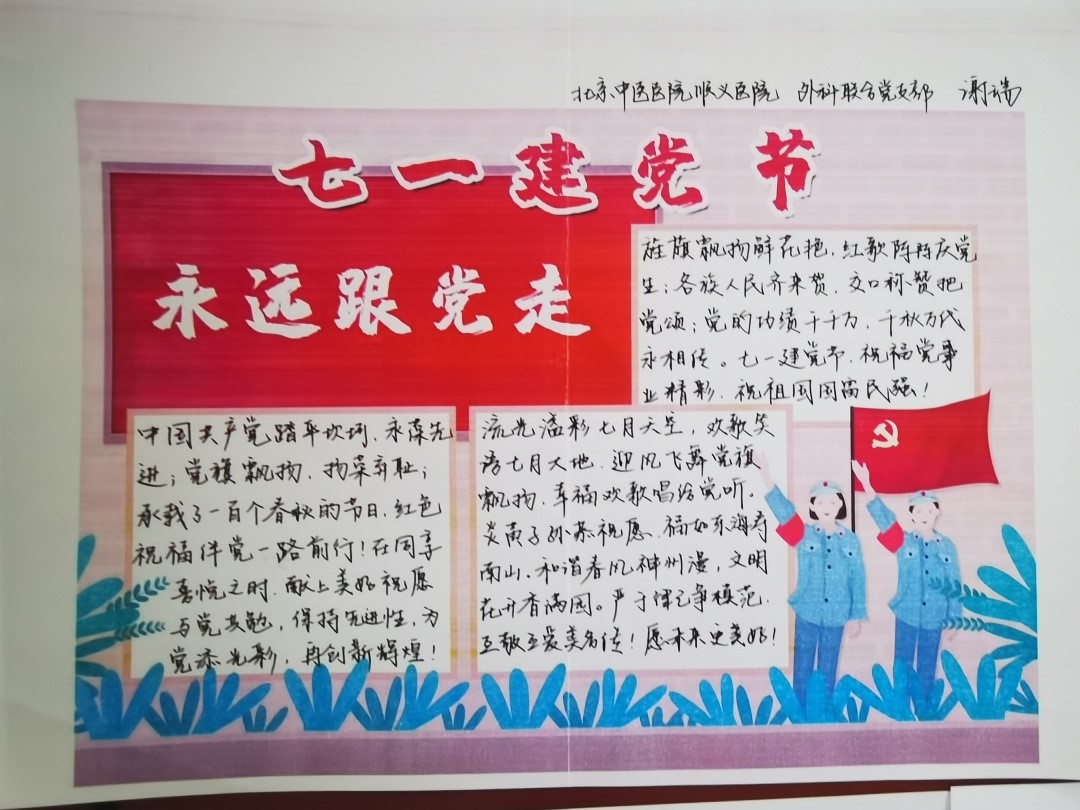 北京中医医院顺义医院 外科联合党支部 谢瑞
七一建党节
永远跟党走
旌旗飘扬鲜花艳，红歌阵阵庆党
生；各族人民齐来贺，交口称赞把
党颂；党的功绩千千万，千秋万代
永相传。七一建党节，祝福党事
业精彩，祝祖国国富民强！
中国共产党踏平坎坷，永葆先
进；党旗飘扬，扬荣弃耻；
承载了一百个春秋的节日，红色
祝福伴党一路前行！在同享
喜悦之时，献上美好祝愿
与党共勉，保持先进性，为
党添光彩，再创新辉煌！
流光溢彩七月天空，欢歌笑
语七月大地，迎风飞舞党旗
飘扬，幸福欢歌唱给党听。
炎黄子孙来祝愿，福如东海寿
南山，和谐春风神州漫，文明
花开香满园。严于律己争模范，
互敬互爱美名传！愿未来更美好！